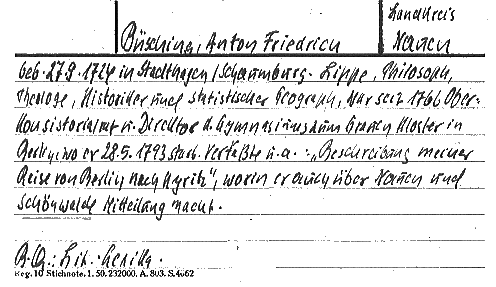 Landkreis
Büsching, Anton Friedrich Nauen
geb. 27.9.1724 in Stadthagen/Schaumburg-Lippe, Philosoph,
Theologe, Historiker und statistischer Geograph, war seit 1766 Ober-
konsistorialrat u. Direktor d. Gymnasiums zum Grauen Kloster in
Berlin, wo er 28.5.1793 starb. Verfaßte u.a.: „Beschreibung meiner
Reise von Berlin nach Kyritz", worin er auch über Nauen und
Schönwalde Mitteilung macht.
B.Qu.: Lit.
Reg. 10 Stichnote. 1. 50. 232000. A. 803. S. 4662